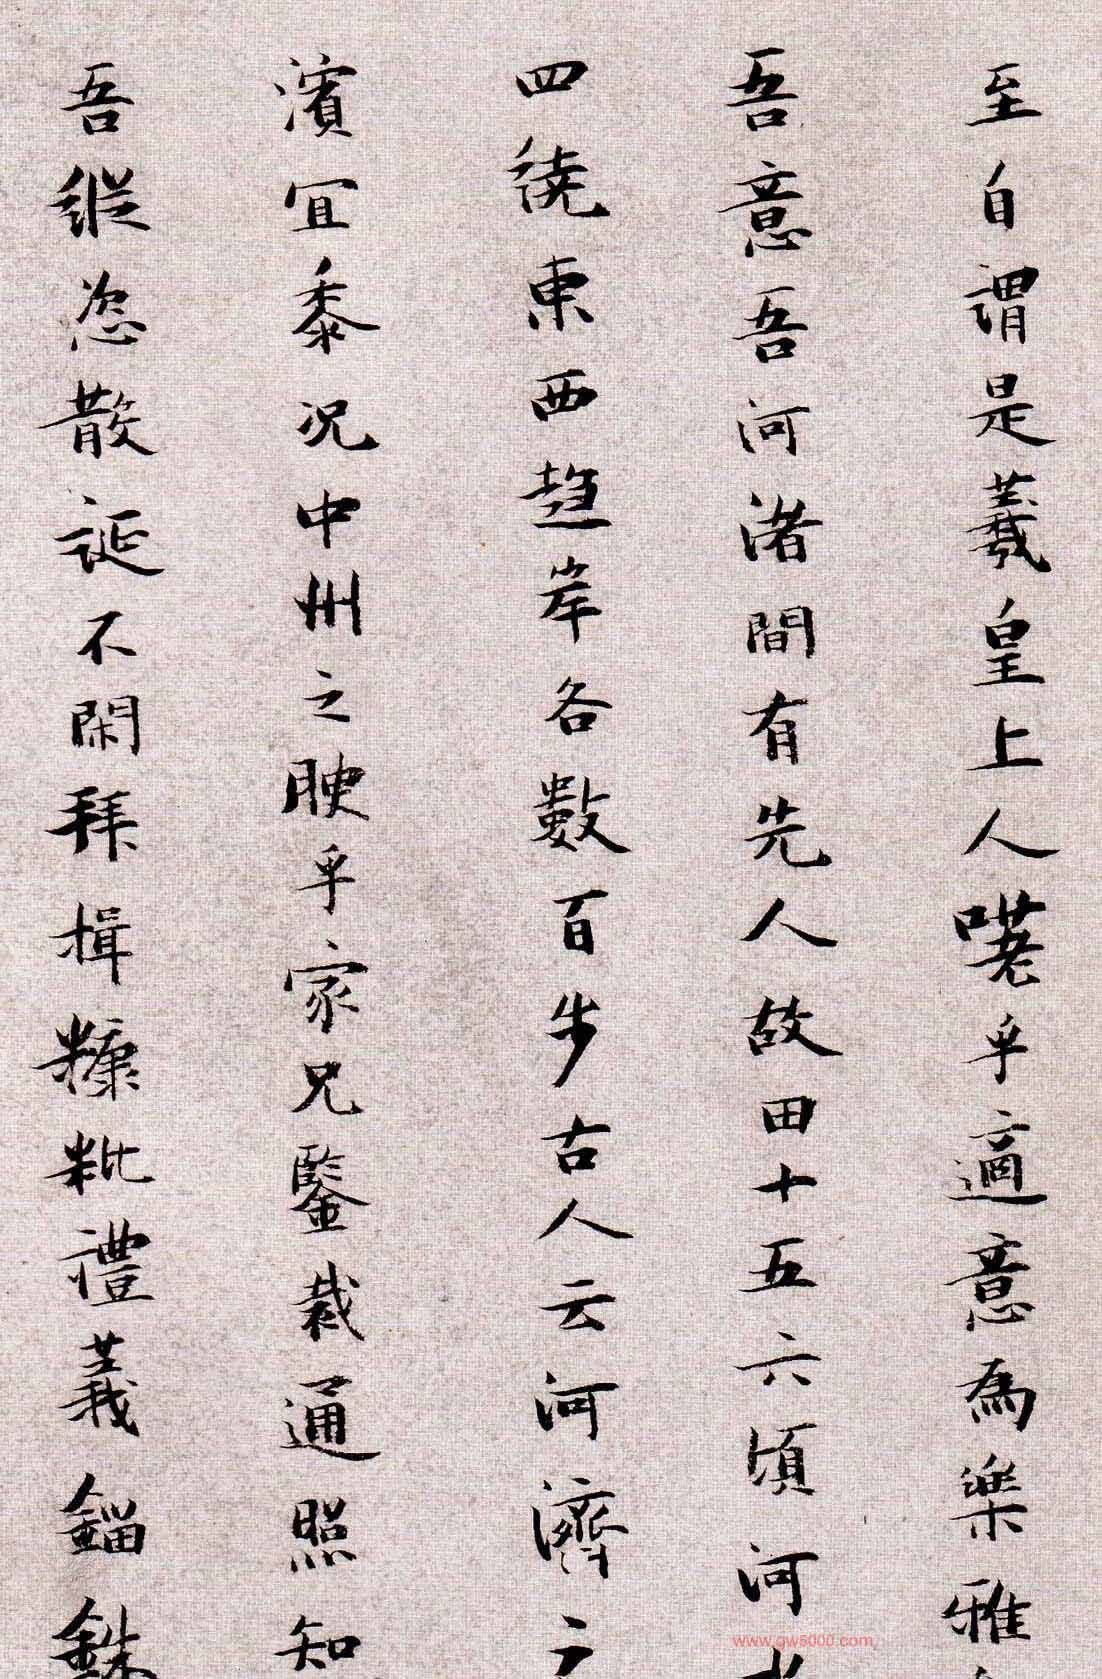 至自謂是羲皇上人嗟乎適意為樂雅
吾意吾河渚間有先人故田十五六頃河
四繞東西趨岸各數百步古人云河濟之
濱宜黍況中州之腴乎家兄鑒裁通照知
吾縱恣散誕不閑拜揖糠粃禮義錙銖
www.gw5000.com